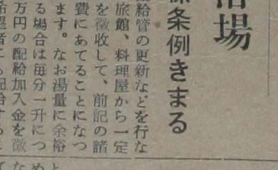 浴場
条例きまる
給管の更新などを行な
旅館、料理屋から一定
を徴収して、前記の諸
費にあてることになつ
ます。なお湯量に余裕
る場合は毎分一升につ
万円の配給加入金を徴